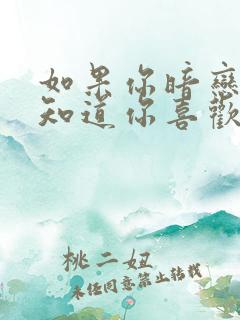 如果你暗戀
知道你喜歡
桃二妞
未经同意禁止转载